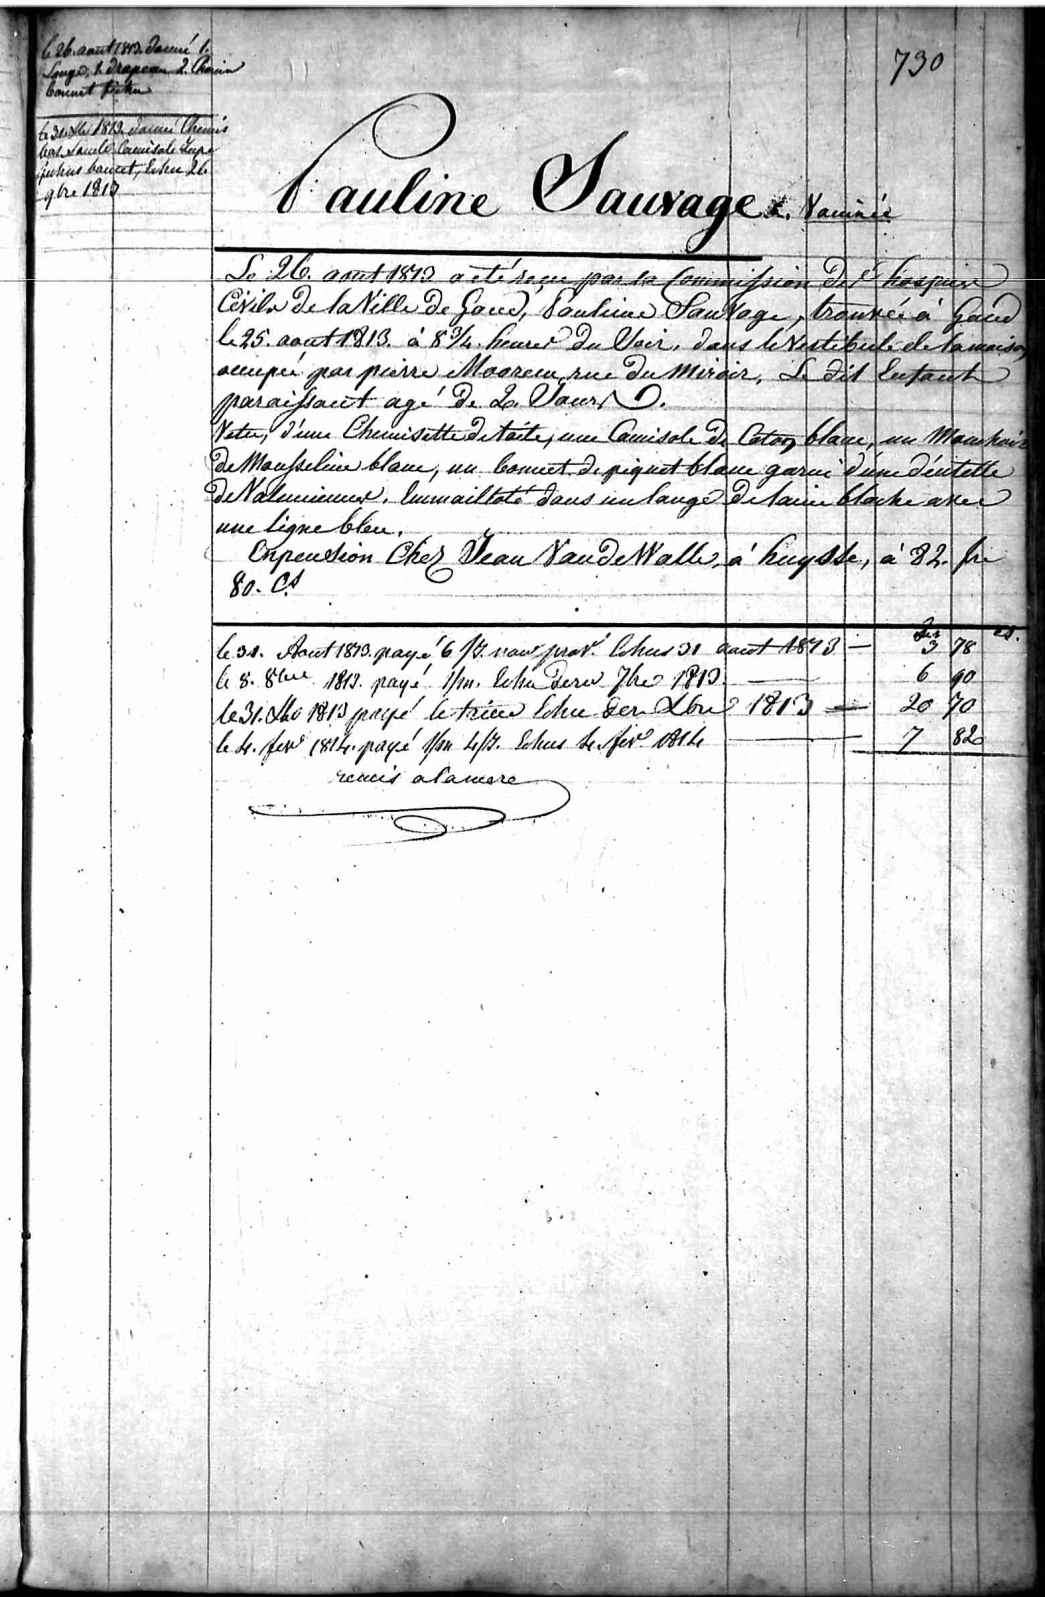 730
le 26. aout 1813. donné 1.
Lange, 1. drapeau 2. Chemis
bonnet fichu
le 31. Xbe 1813 donné Chemis
bas Camisole Jupe
fichus bonnet, Echu 26
9bre 1813
Pauline Sauvage. Vaccinée
Le 26. aout 1813 a été reçu par la Commission des hospices
Civils de la Ville de Gand, Pauline Sauvage, trouvée à Gand
le 25. aout 1813. à 8 3/4. heures du Soir, dans le Vestibule de la maison
occupée par pierre Moorem rue du Miroir, Le dit Enfant
paraissant agé de 2. Jours.
Vetu, d'une Chemisette de toile, une Camisole de Coton blanc, un Mouchoir
de Mousseline blanc, un bonnet de piquet blanc garni d'une déntelle
de Valenciennes. Emmailloté dans un lange de laine blanche avec
une ligne bleu.
Enpension Chez Jean VandeWalle, à huysse, à 82. frs
80. Cs
frs cs.
le 31. Aout 1813. payé 6 /7. nouv prov. Echus 31 aout 1813 — 3 78
le 8. 8bre 1813. payé 1/m. Echu dern 7bre 1813. — 6 90
le 31. Xbe 1813 payé le trime Echu der Xbre 1813 — 20 70
le 4. fevr 1814. payé 1/m 4/7. Echus 4. fevr 1814 — 7 82
remis a la mere